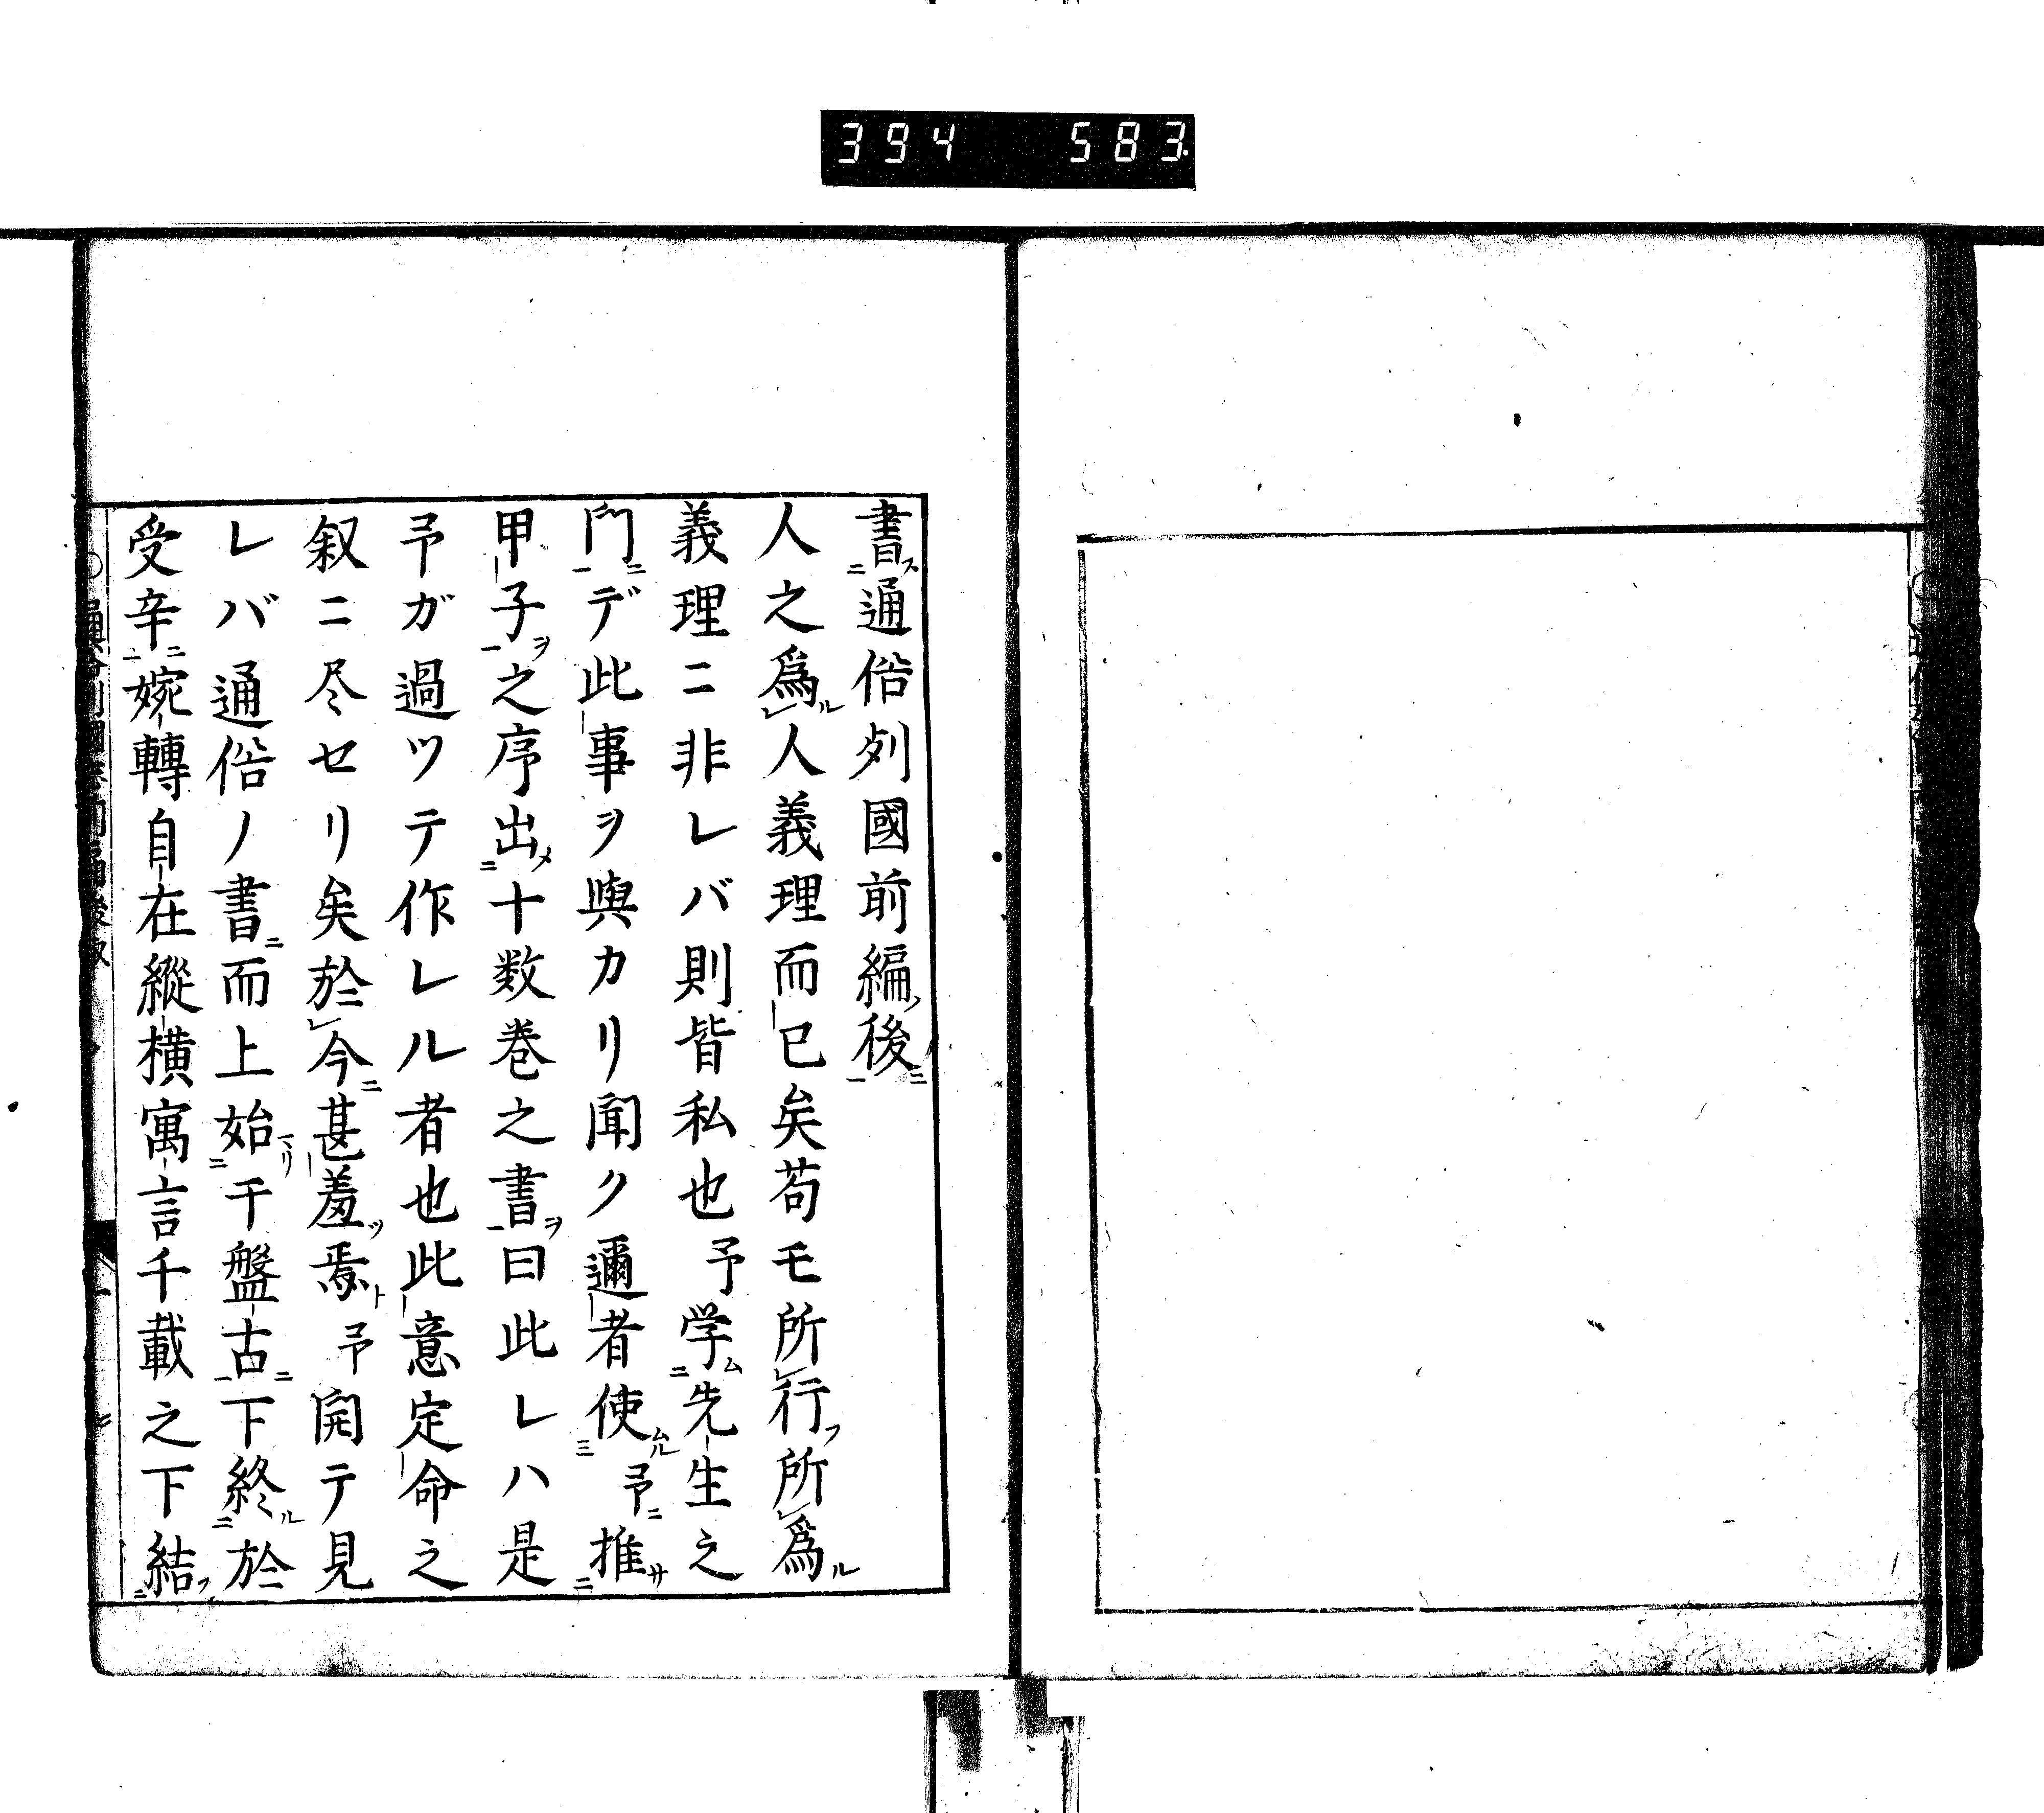 394 583
書通俗列國前編後
人之爲人義理而已矣苟モ所行所爲
義理ニ非レバ則皆私也予学先生之
門デ此事ヲ與カリ聞ク邇者使予推
甲子之序出十数巻之書曰此レハ是
予ガ過ツテ作レル者也此意定命之
叙ニ尽セリ矣於今甚羞焉予開テ見
レバ通俗ノ書而上始于盤古下終於
受辛婉轉自在縱横寓言千載之下結